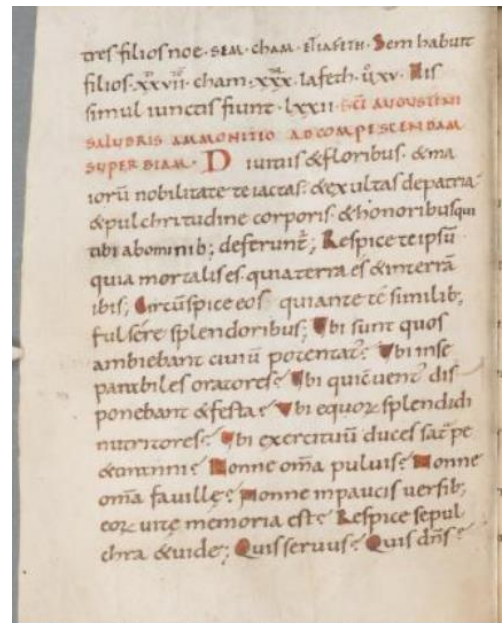 tres filios noe · sem · cham · et iafeth · Sem habuit
filios · xxvii · cham · xxx · Iafeth · xv · His
simul iunctis fiunt · lxxii · SCI AUGUSTINI
SALUBRIS AMMONITIO AD COMPESCENDAM
SUPERBIAM · Diuitiis & floribus · & ma
iorū nobilitate te iactas · & exultas de patria
& pulchritudine corporis · & honoribus qui
tibi ab ominib; deferunt̄; Respice te ipsū
quia mortalis es quia terra es & in terrā
ibis; Circūspice eos qui ante te similib;
fulsere splendoribus; Ubi sunt quos
ambiebant ciuiū potentat Ubi inse
parabiles oratores? Ubi qui
ponebant & festa? Ubi equoꝝ splendidi
nutritores? Ubi exercituū duces
Nonne om̄a puluis? Nonne
om̄a fauillę? Nonne in paucis versib;
eoꝝ uitę memoria est? Respice sepul
chra & uide; Quis seruus? Quis dn̄s?